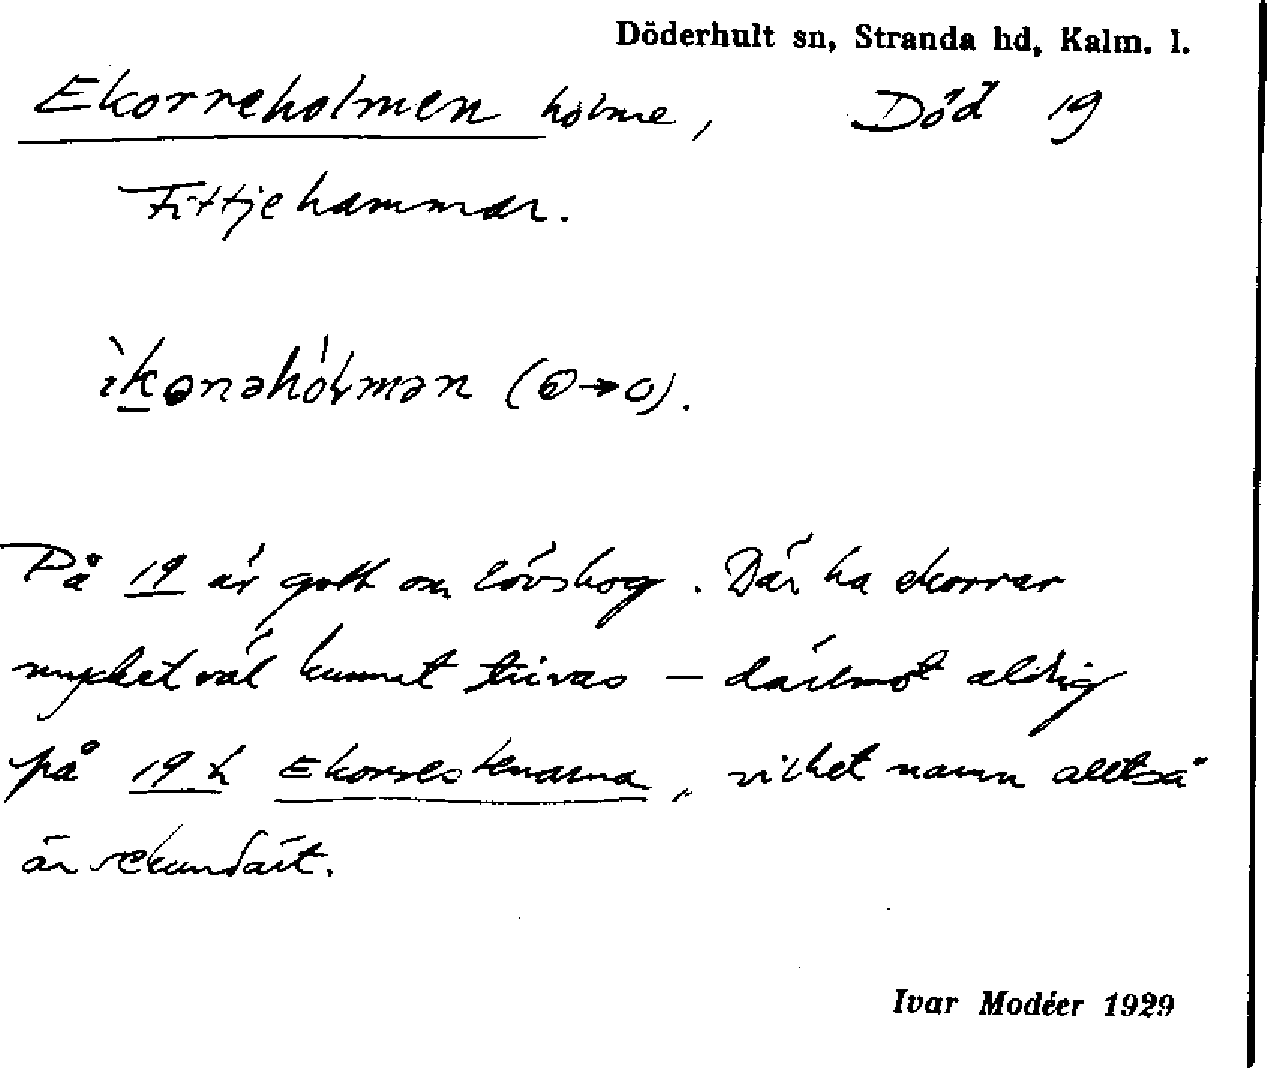 Döderhult sn, Stranda hd, Kalm. l.
Ekorreholmen holme, Död 19
Fittjehammar.
ìkɵrəhólmən (ɵ→o).
På 19 är gott om lövskog. Där ha ekorrar
mycket väl kunnat trivas — däremot aldrig
på 19 h Ekorrestenarna, vilket namn alltså
är sekundärt.
Ivar Modéer 1929